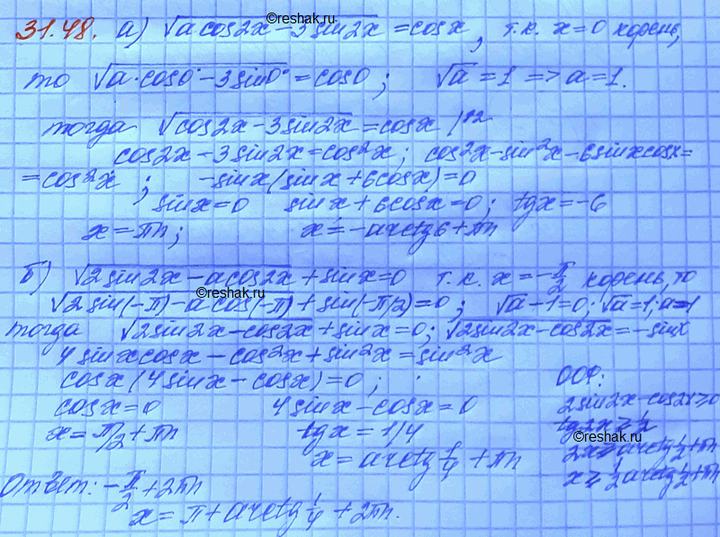 ©reshak.ru
31.48. а) √(a cos2x − 3 sin2x) = cos x, т.к. x=0 корень,
то √(a·cos0° − 3 sin0°) = cos0 ; √a = 1 => a = 1.
тогда √(cos2x − 3 sin2x) = cos x |^2
cos2x − 3 sin2x = cos²x ; cos²x − sin²x − 6 sinx cosx =
= cos²x ; −sinx (sinx + 6cosx) = 0
sin x = 0 sin x + 6cosx = 0 ; tgx = −6
x = πn ; x = −arctg6 + πn
б) √(2 sin2x − a cos2x) + sin x = 0 т.к. x = −π/2 корень, то
©reshak.ru
√(2 sin(−π) − a cos(−π)) + sin(−π/2) = 0 ; √a − 1 = 0 ; √a = 1 ; a = 1
тогда √(2 sin2x − cos2x) + sin x = 0 ; √(2 sin2x − cos2x) = −sin x
4 sinx cosx − cos²x + sin²x = sin²x
cosx (4 sinx − cosx) = 0 ;
cos x = 0 4 sin x − cosx = 0
x = π/2 + πn tgx = 1/4
x = arctg 1/4 + πn
ООФ:
2 sin2x − cos2x ≥ 0
tg2x ≥ 1/2
©reshak.ru
2x ≥ arctg 1/2 + πn
x ≥ 1/2 arctg 1/2 + πn
Ответ: −π/2 + 2πn
x = π + arctg 1/4 + 2πn.